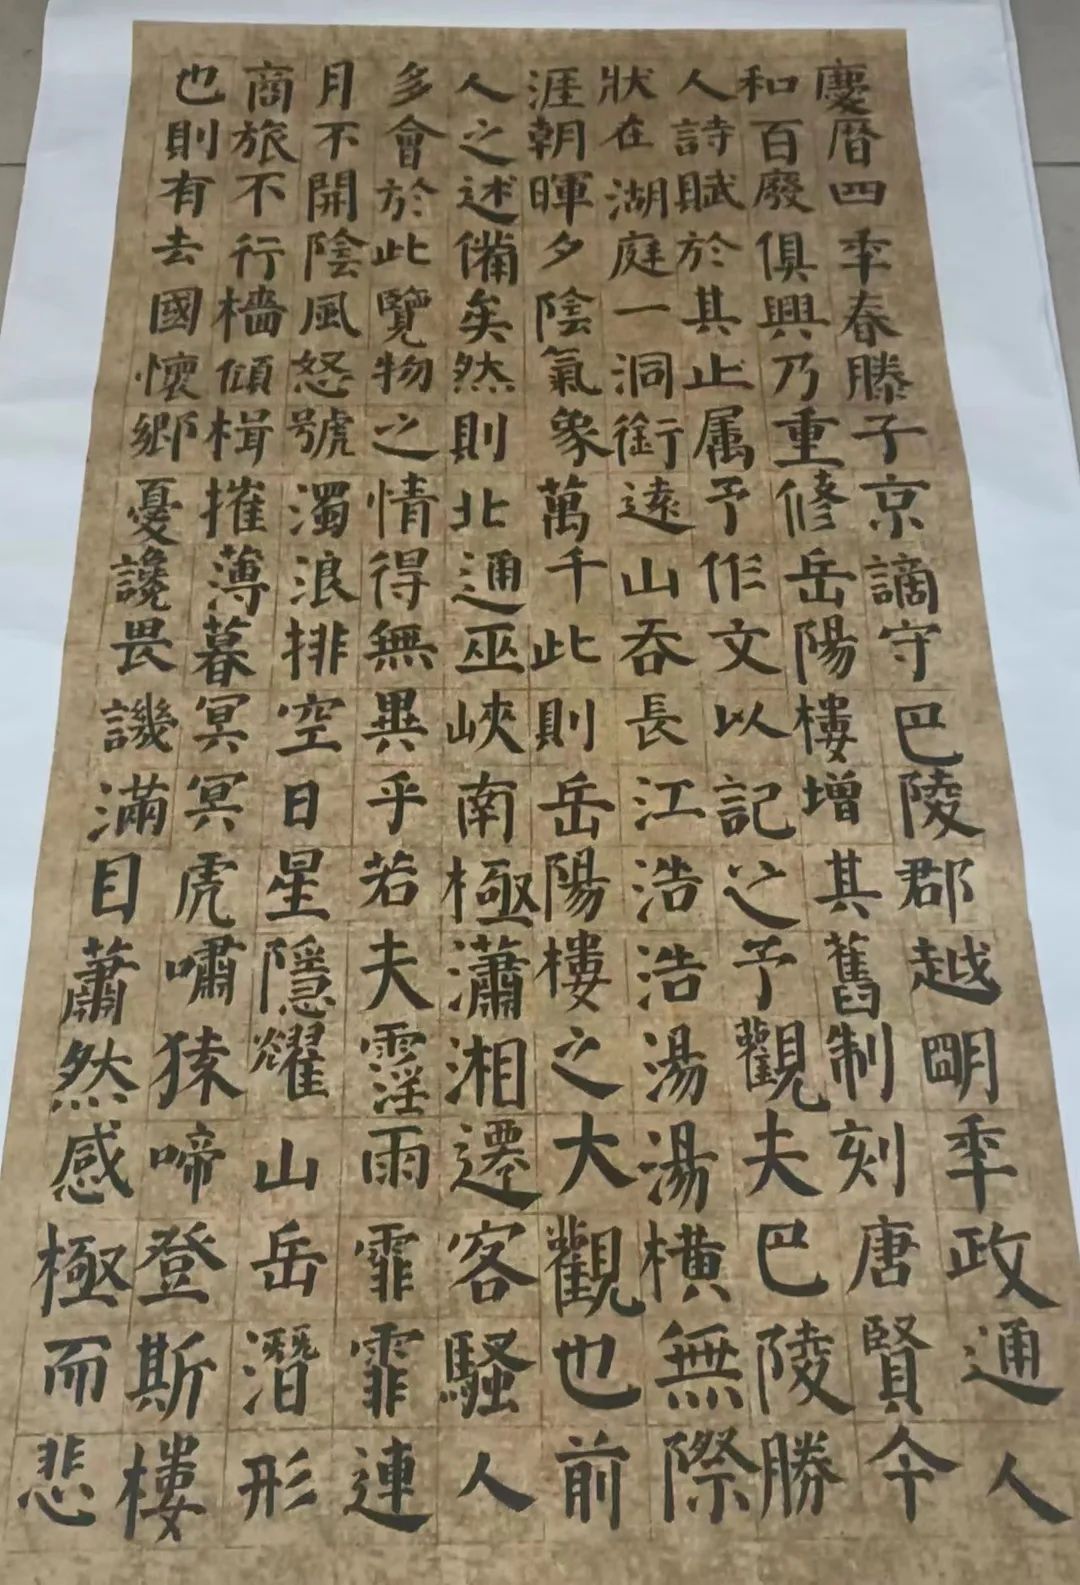 慶暦四秊春滕子京謫守巴陵郡越朙秊政通人
和百廢俱興乃重修岳陽樓增其舊制刻唐賢今
人詩賦於其止属予作文以記之予觀夫巴陵勝
狀在湖庭一洞銜遠山吞長江浩浩湯湯橫無際
涯朝暉夕陰氣象萬千此則岳陽樓之大觀也前
人之述備矣然則北通巫峽南極瀟湘遷客騷人
多會於此覽物之情得無異乎若夫霪雨霏霏連
月不開陰風怒號濁浪排空日星隱耀山岳潛形
商旅不行檣傾楫摧薄暮冥冥虎嘯猿啼登斯樓
也則有去國懷鄉憂讒畏譏滿目蕭然感極而悲